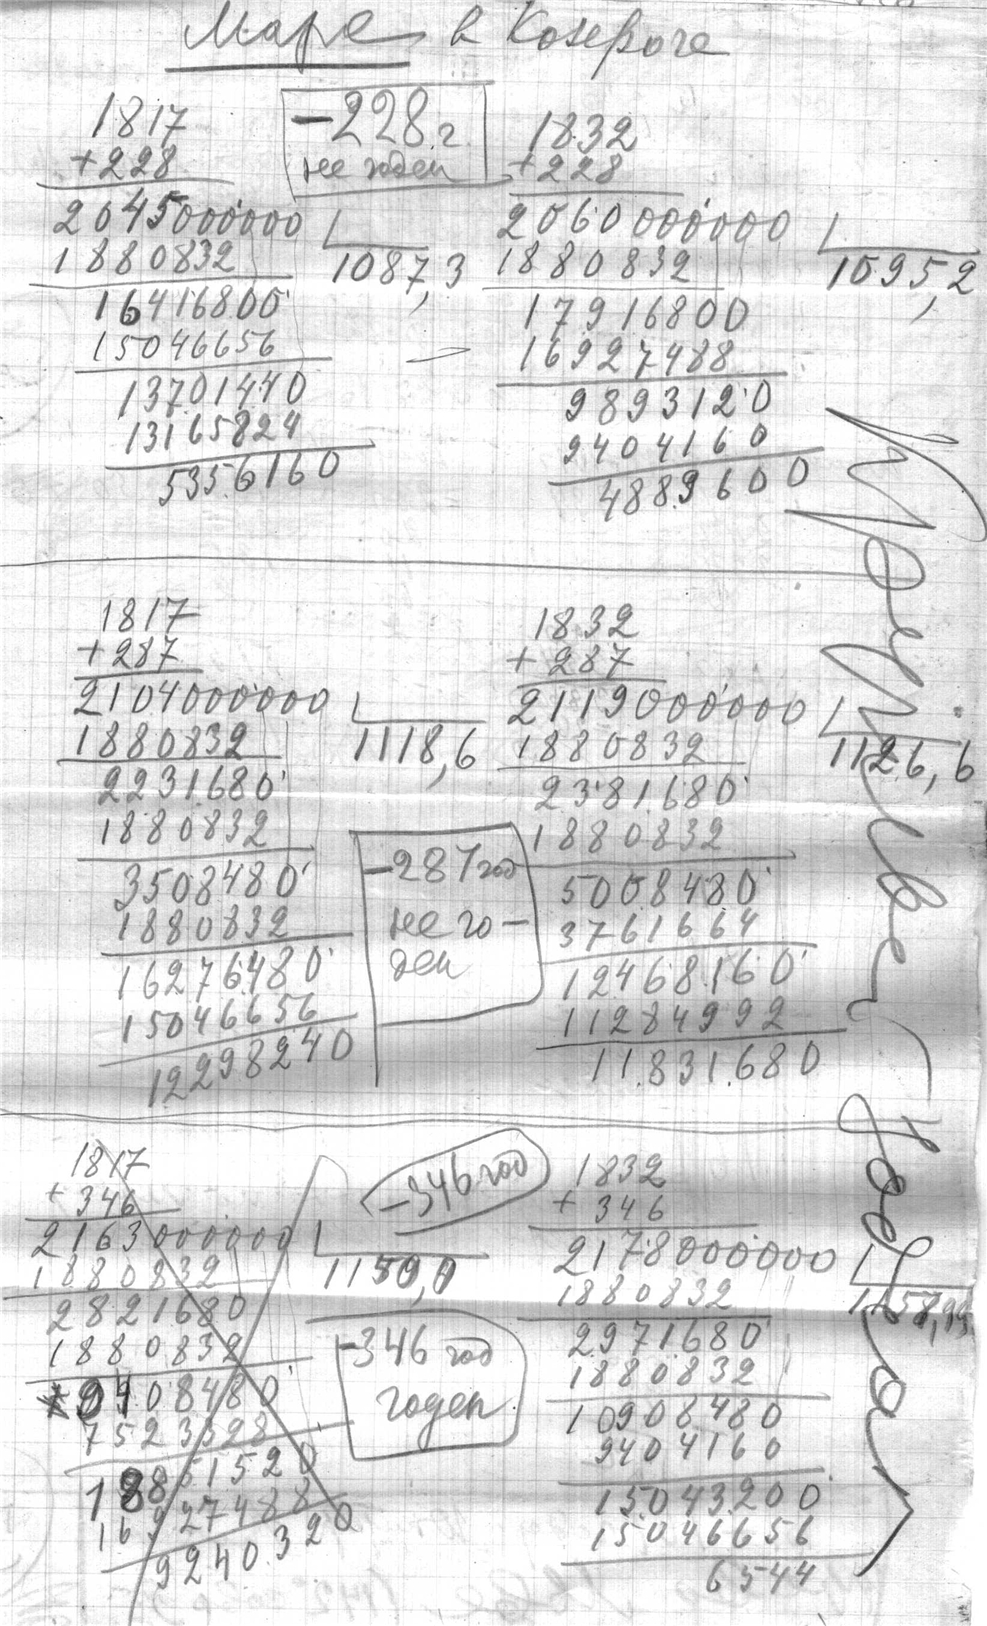 Марс в Козероге
1817
+228
2045000000
1087,3
1880832
16416800
15046656
13701440
13165824
5356160
-228 г.
не годен
1832
+228
2060000000
1095,2
1880832
17916800
16927488
9893120
9404160
4889600
1817
+287
2104000000
1118,6
1880832
2231680
1880832
3508480
1880832
16276480
15046656
12298240
-287 год
не го-
ден
1832
+287
2119000000
1126,6
1880832
2381680
1880832
5008480
3761664
12468160
11284992
11831680
1817
+346
2163000000
1150,0
1880832
2821680
1880832
9408480
7523328
18851520
16927488
9240320
-346 год
-346 год
годен
1832
+346
2178000000
1880832
2971680
1880832
10908480
9404160
15043200
15046656
6544